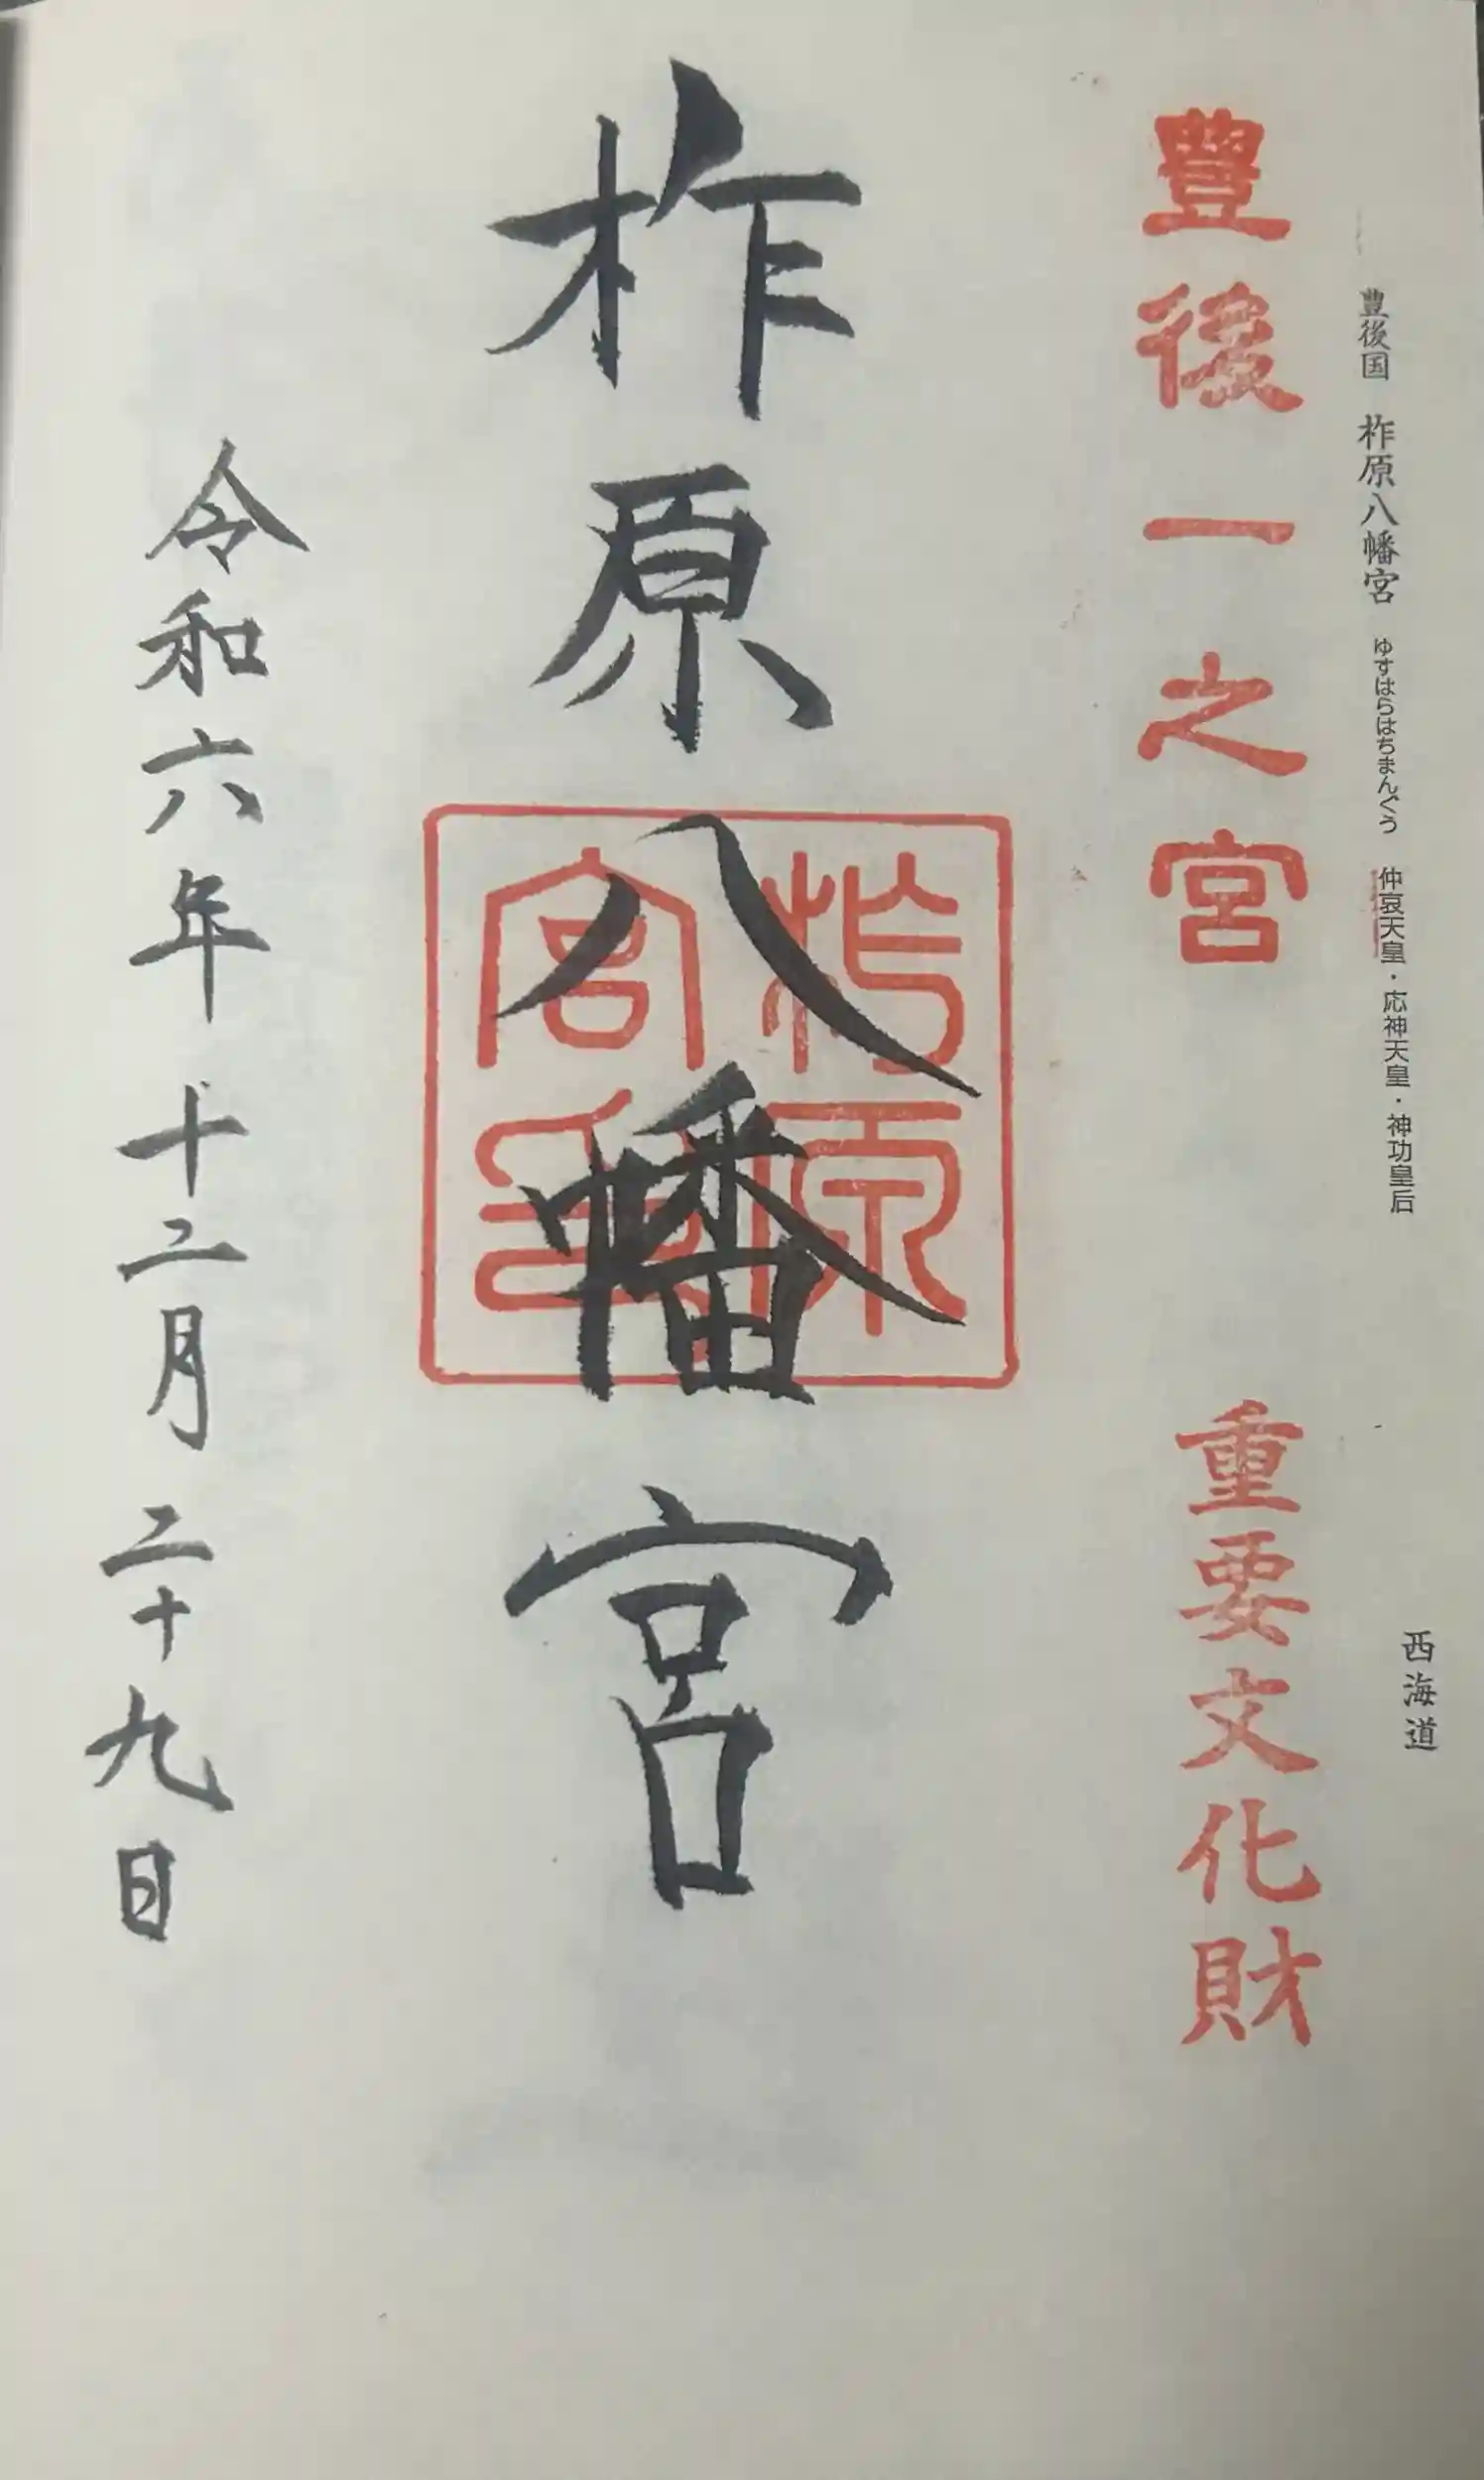 豊後国 柞原八幡宮 ゆすはらはちまんぐう 仲哀天皇・応神天皇・神功皇后
西海道
豊後一之宮
重要文化財
柞原八幡宮
柞原宮印
令和六年十二月二十九日